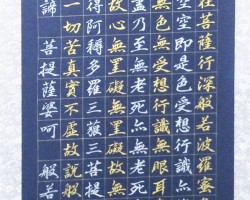 在菩薩行深般若波羅蜜
空空即是色受想行識亦
無色無受想行識無眼耳
盡乃至無老死亦無老死
故心無罣礙無罣礙故無
得阿耨多羅三藐三菩提
一切苦真實不虛故說般
諦 菩提薩婆呵 般若